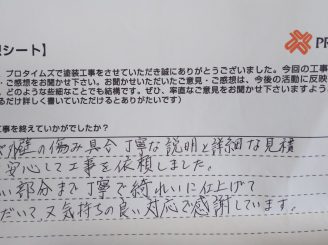 シート
PR
プロタイムズで塗装工事をさせていただき誠にありがとうございました。今回の工事
ご感想をお聞かせ下さい。お聞かせいただいたご意見・ご感想は、今後の活動に反映
、どのような些細なことでも結構です。ぜひ、率直なご意見をお聞かせ下さいますよう
るだけ詳しく書いていただけるとありがたいです)
工事を終えていかがでしたか?
壁の傷み具合 丁寧な説明と詳細な見積
安心して工事を依頼しました。
い部分まで丁寧で綺れいに仕上げて
だいて、又気持ちの良い対応で感謝しています。